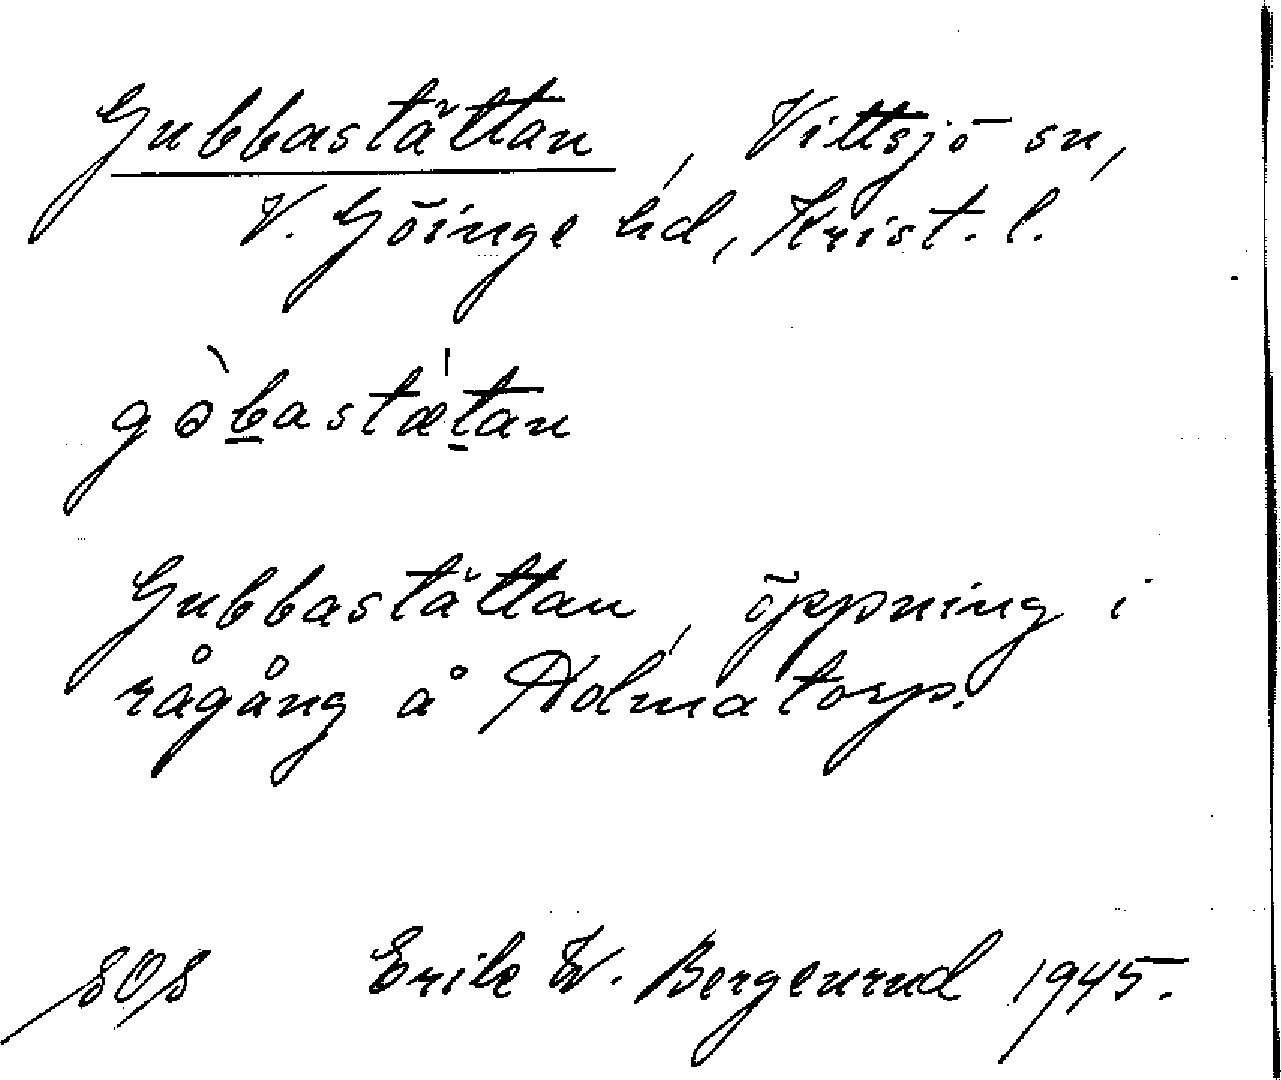 Gubbastättan, Vittsjö sn,
V. Göinge hd, Krist. l.
gə̀bastætan
Gubbastättan, öppning i
rågång å Holmatorp.
SOS Erik W. Bergenrud 1945.